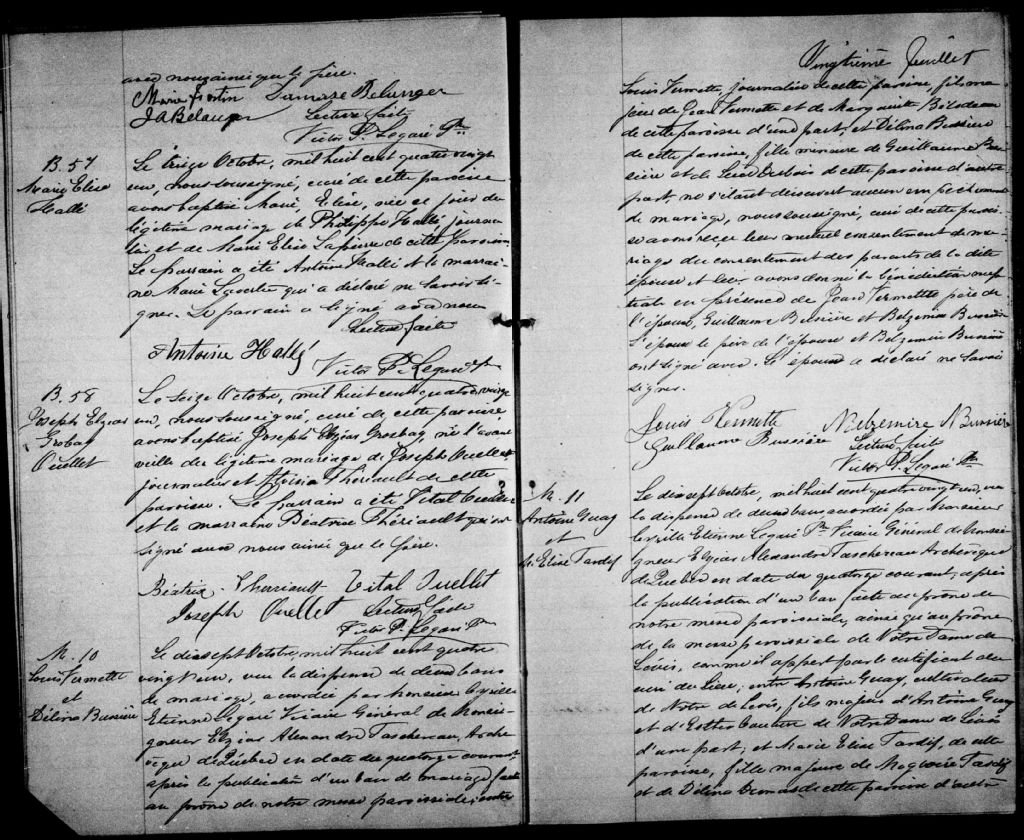 avec nous ainsi que le père.
Marie Fortin Damase Belanger
J A Belanger Lecture faite
Victor P. Légaré Ptre
B. 57
Marie Elise
Hallé
Le treize Octobre, mil huit cent quatre vingt
un, nous soussigné, curé de cette paroisse
avons baptisé Marie Elise, née ce jour du
légitime mariage de Philippe Hallé, journa
lier et de Marie Elise Lapierre de cette paroisse
Le parrain a été Antoine Hallé et la marrai-
ne Marie qui a déclaré ne savoir si-
gner. Le parrain a signé avec nous
Lecture faite
Antoine Hallé
Victor P. Légaré Ptre
B. 58
Joseph Elzéar
Ouellet
Le seize Octobre, mil huit cent quatre vingt
un, nous soussigné, curé de cette paroisse
avons baptisé Joseph Elzéar né l'avant
veille du légitime mariage de Joseph Ouellet
journalier et Theriault de cette
paroisse. Le parrain a été Vital Ouellet
et la marraine Béatrice Thériault qui ont
signé avec nous ainsi que le père.
Béatrice Theriault Vital Ouellet
Joseph Ouellet Lecture faite
Victor P. Légaré Ptre
M. 10
Louis Vermette
et
Délina Bussière
Le dix sept Octobre, mil huit cent quatre
vingt un, vu la dispense de deux bans
de mariage, accordée par Monsieur Cyrille
Etienne Légaré Vicaire Général de Monsei-
gneur Elzéar Alexandre Taschereau, Arche
vêque de Québec en date du quatorze courant
après la publication d'un ban de mariage faite
au prône de notre messe paroissiale, entre
Vingtième feuillet
Louis Vermette, journalier de cette paroisse, fils ma
jeur de Jean Vermette et de Marguerite Bilodeau
de cette paroisse d'une part, et Délina Bussière
de cette paroisse, fille mineure de Guillaume Bus
sière et de de cette paroisse d'autre
part, ne s'étant découvert aucun empêchement
de mariage, nous soussigné, curé de cette parois-
se avons reçu leur mutuel consentement de ma-
riage du consentement des parents de la dite
épouse et leur avons donné la bénédiction nup
tiale en présence de Jean Vermette père de
l'époux, Guillaume Bussière et Belzemire Bussière
L'époux le père de l'épouse et Belzemire Bussière
ont signé avec. L'épouse a déclaré ne savoir
signer.
Louis Vermette Belzemire Bussière
Guillaume Bussière Lecture faite
Victor P. Légaré Ptre
M. 11
Antoine Guay
et
M. Elise Tardif
Le dix sept Octobre, mil huit cent quatre vingt un, vu
la dispense de deux bans accordée par Monsieur
Cyrille Etienne Légaré Ptre Vicaire Général de Monsei
gneur Elzéar Alexandre Taschereau Archevêque
de Québec en date du quatorze courant, après
la publication d'un ban faite au prône de
notre messe paroissiale, ainsi qu'au prône
de la messe paroissiale de Notre Dame de
Lévis, comme il appert par le certificat du
curé du lieu; entre Antoine Guay, cultivateur
de Notre de Lévis, fils majeur d'Antoine Guay
et d'Esther Couture de Notre Dame de Lévis
d'une part; et Marie Elise Tardif, de cette
paroisse, fille majeure de Magloire Tardif
et de Délina Dumas de cette paroisse d'autre